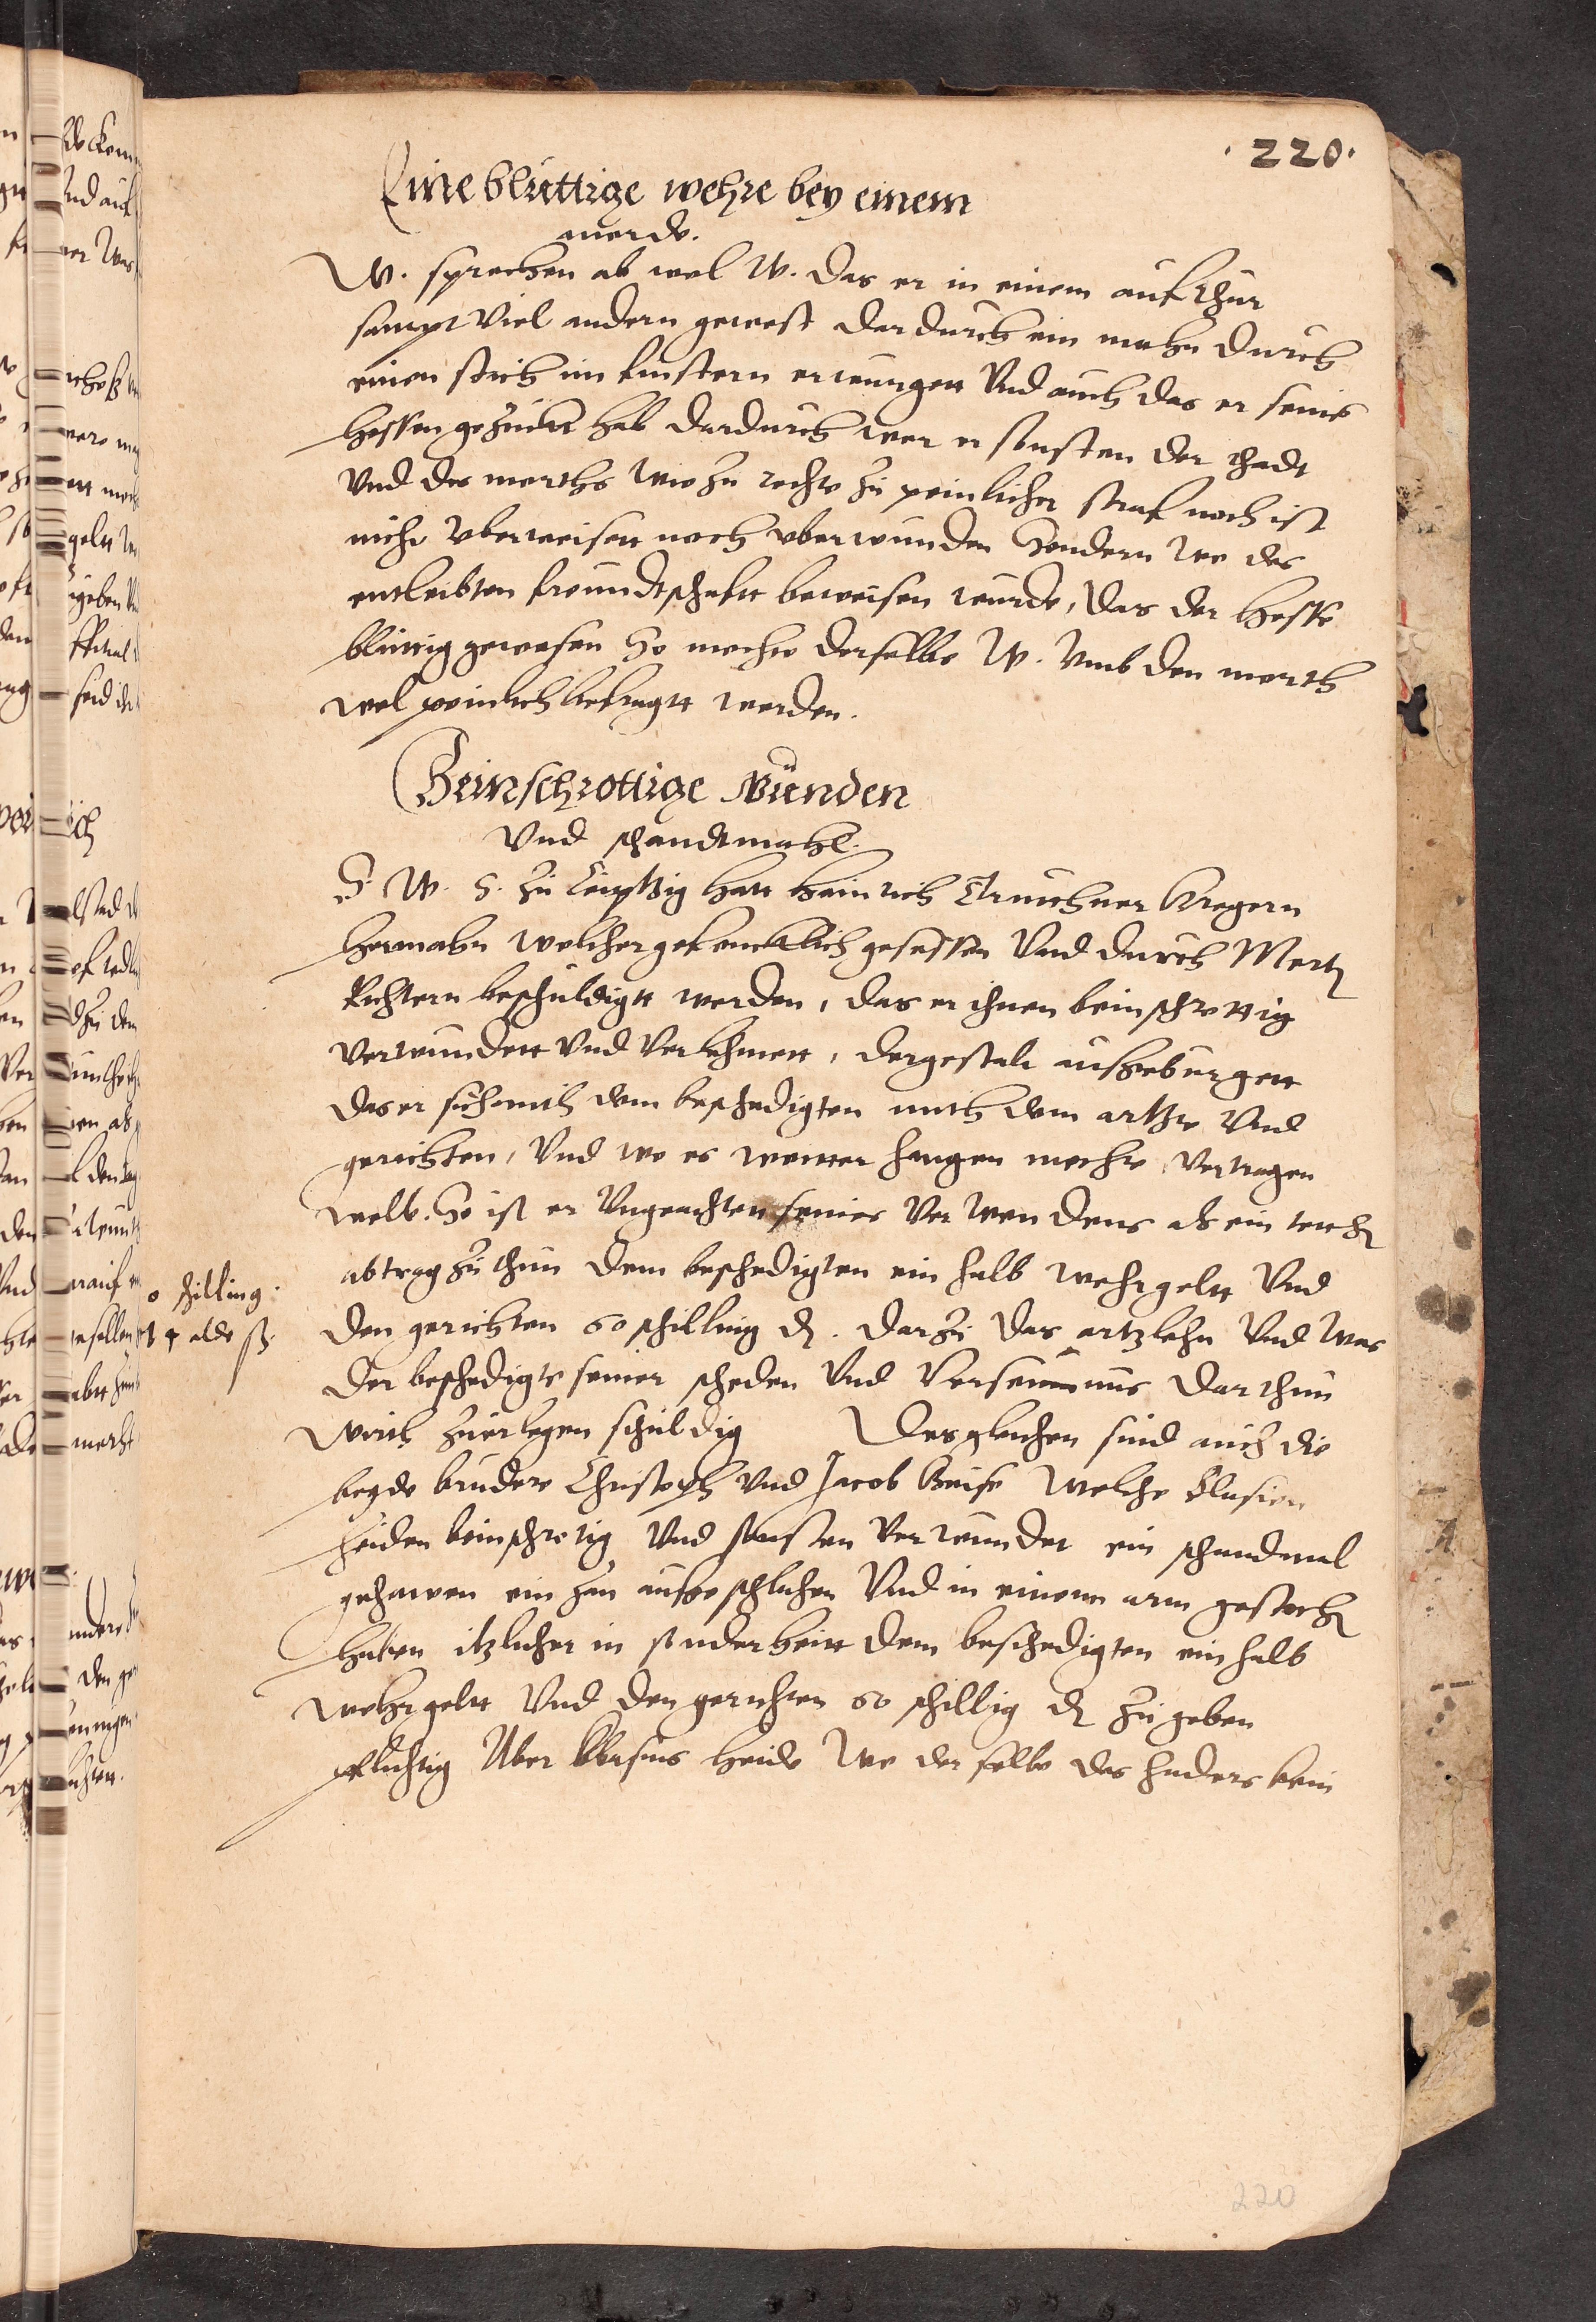 · 220 ·
Eine bluttige wehre bey einem
morde.
W. sprechen ab wol W. das er in einem aufthur
sampt viel andern gewest dardurch ein mahn durch
einen stich im finstern erwurgett Und auch das er seine
hessen gezuckt hab dardurch wer er sonsten der thadt
Und des morths wie zu rechte zu peinlicher straf noch ist
nicht uberweisett noch uberwunden Sondern wo des
entleibten freundtschafft beweisen wurde, das der hesse
bluttig gewesen So mochte derselbe W. umb den morth
wol peinlich befragtt werden.
Beinschrottige wunden
Und schandtmahl.
S. W. S. zu Leiptzig hatt Heinrich Kregern
hermahn welcher gefencklich gesessen Und durch Mertt
Richtern beschuldigtt worden, das er ihnen beinschrottig
verwundett Und verlehmett, dergestalt ausgeburgett
das er sich mith dem beschedigten mith dem artzte Und
gerichten, Und wo es weitter hangen mochte, vertragen
wolt. So ist er Ungeachtett seines verwendens als ein
abtrag zu thun dem beschedigten ein halb wehrgeltt Und
den gerichten 60 schilling d. darzu das artzlohn Und was
der beschedigte seiner scheden Und verseumnus darthun
wirth zu erlegen schuldig Desgleichen sind auch die
beyde bruder Christoph Und Jacob Greife welche Blasien
heiden beinschrotig Und sonsten verwundet ein schandmal
gehawen ein zan ausgeschlahen Und in einem arm gestochen
haben itzlicher in sonderheitt dem beschedigten ein halb
wehrgeltt Und den gerichten 60 schillig d zu geben
pflichtig Aber Blasius heide wo derselbe des haders kein
schilling.
4 alde ß.
220